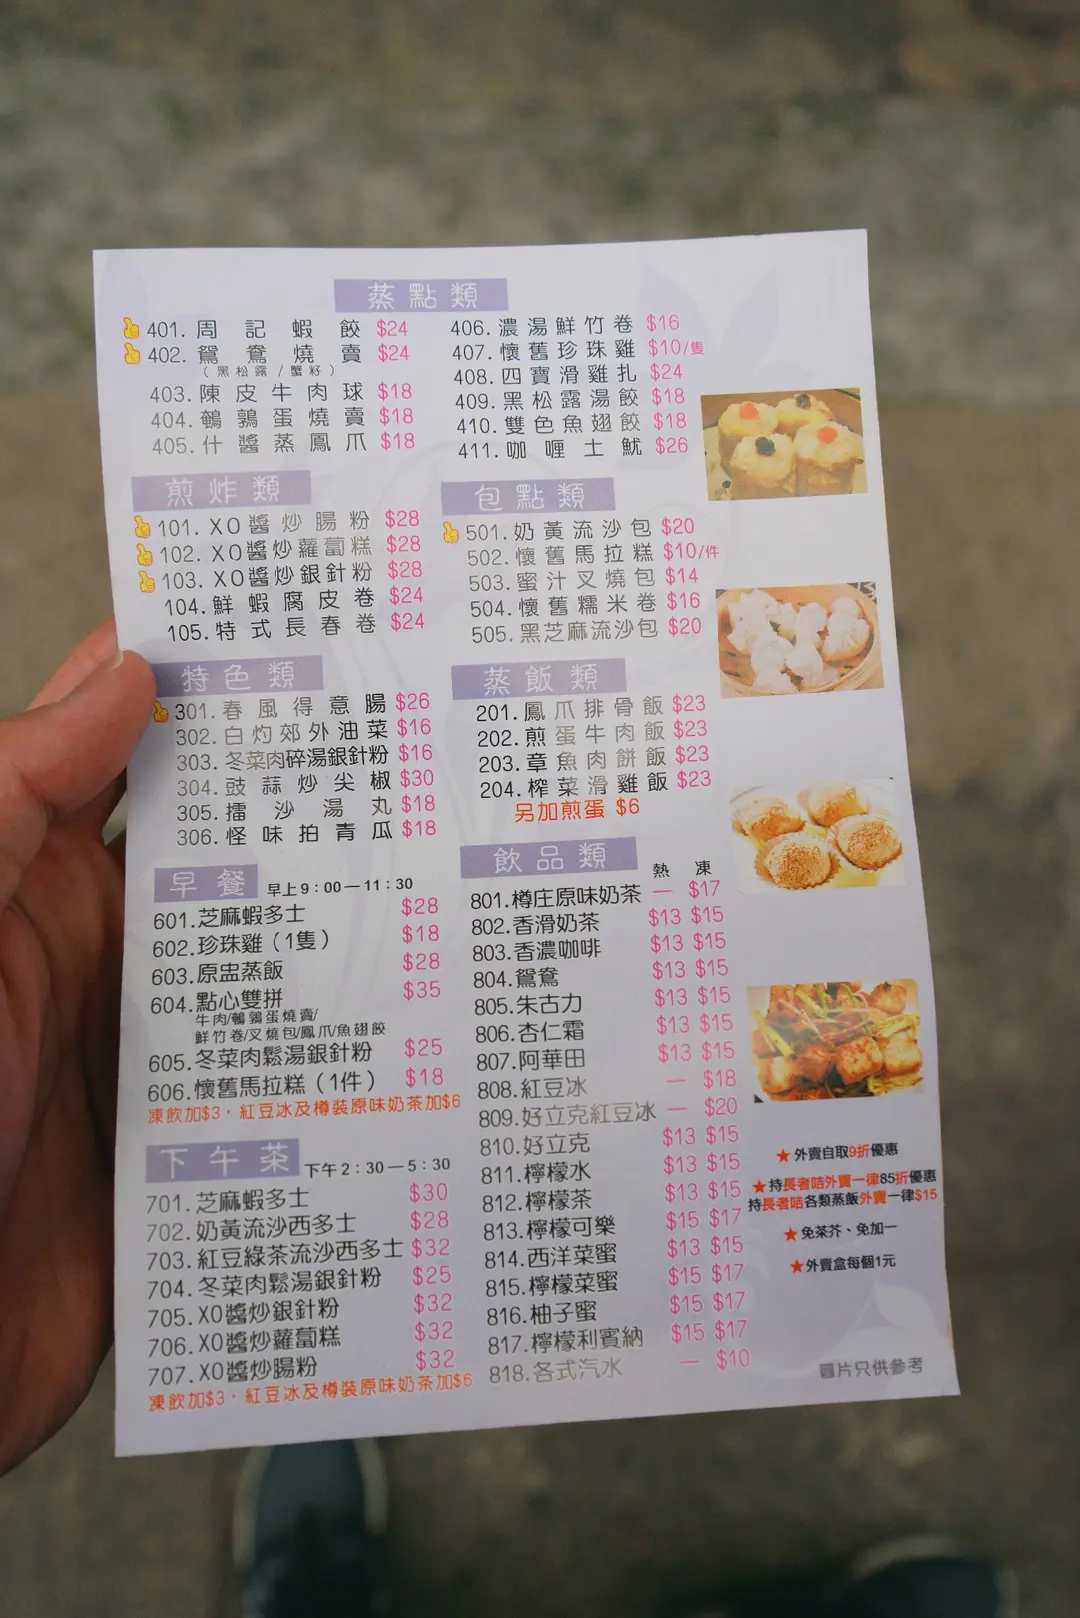 蒸點類
401. 周記蝦餃 $24
402. 鴛鴦燒賣 $24
(黑松露/蟹籽)
403. 陳皮牛肉球 $18
404. 鵪鶉蛋燒賣 $18
405. 什醬蒸鳳爪 $18
406. 濃湯鮮竹卷 $16
407. 懷舊珍珠雞 $10/隻
408. 四寶滑雞扎 $24
409. 黑松露湯餃 $18
410. 雙色魚翅餃 $18
411. 咖喱土魷 $26
煎炸類
101. XO醬炒腸粉 $28
102. XO醬炒蘿蔔糕 $28
103. XO醬炒銀針粉 $28
104. 鮮蝦腐皮卷 $24
105. 特式長春卷 $24
包點類
501. 奶黃流沙包 $20
502. 懷舊馬拉糕 $10/件
503. 蜜汁叉燒包 $14
504. 懷舊糯米卷 $16
505. 黑芝麻流沙包 $20
特色類
301. 春風得意腸 $26
302. 白灼郊外油菜 $16
303. 冬菜肉碎湯銀針粉 $16
304. 豉蒜炒尖椒 $30
305. 擂沙湯丸 $18
306. 怪味拍青瓜 $18
蒸飯類
201. 鳳爪排骨飯 $23
202. 煎蛋牛肉飯 $23
203. 章魚肉餅飯 $23
204. 榨菜滑雞飯 $23
另加煎蛋 $6
早餐 早上9：00—11：30
601. 芝麻蝦多士 $28
602. 珍珠雞（1隻） $18
603. 原盅蒸飯 $28
604. 點心雙拼 $35
牛肉/鵪鶉蛋燒賣/
鮮竹卷/叉燒包/鳳爪/魚翅餃
605. 冬菜肉鬆湯銀針粉 $25
606. 懷舊馬拉糕（1件） $18
凍飲加$3，紅豆冰及樽裝原味奶茶加$6
下午茶 下午2：30—5：30
701. 芝麻蝦多士 $30
702. 奶黃流沙西多士 $28
703. 紅豆綠茶流沙西多士 $32
704. 冬菜肉鬆湯銀針粉 $25
705. XO醬炒銀針粉 $32
706. XO醬炒蘿蔔糕 $32
707. XO醬炒腸粉 $32
凍飲加$3，紅豆冰及樽裝原味奶茶加$6
飲品類 熱 凍
801. 樽庄原味奶茶 — $17
802. 香滑奶茶 $13 $15
803. 香濃咖啡 $13 $15
804. 鴛鴦 $13 $15
805. 朱古力 $13 $15
806. 杏仁霜 $13 $15
807. 阿華田 $13 $15
808. 紅豆冰 — $18
809. 好立克紅豆冰 — $20
810. 好立克 $13 $15
811. 檸檬水 $13 $15
812. 檸檬茶 $13 $15
813. 檸檬可樂 $15 $17
814. 西洋菜蜜 $13 $15
815. 檸檬菜蜜 $15 $17
816. 柚子蜜 $15 $17
817. 檸檬利賓納 $15 $17
818. 各式汽水 — $10
★外賣自取9折優惠
★持長者咭外賣一律85折優惠
持長者咭各類蒸飯外賣一律$15
★免茶芥、免加一
★外賣盒每個1元
圖片只供參考